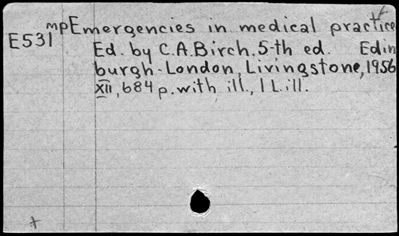 мр Emergencies in medical practice
E531
Ed. by C.A. Birch. 5-th ed. Edin
burgh-London, Livingstone, 1956
XII, 684 p. with ill., 1 L. ill.